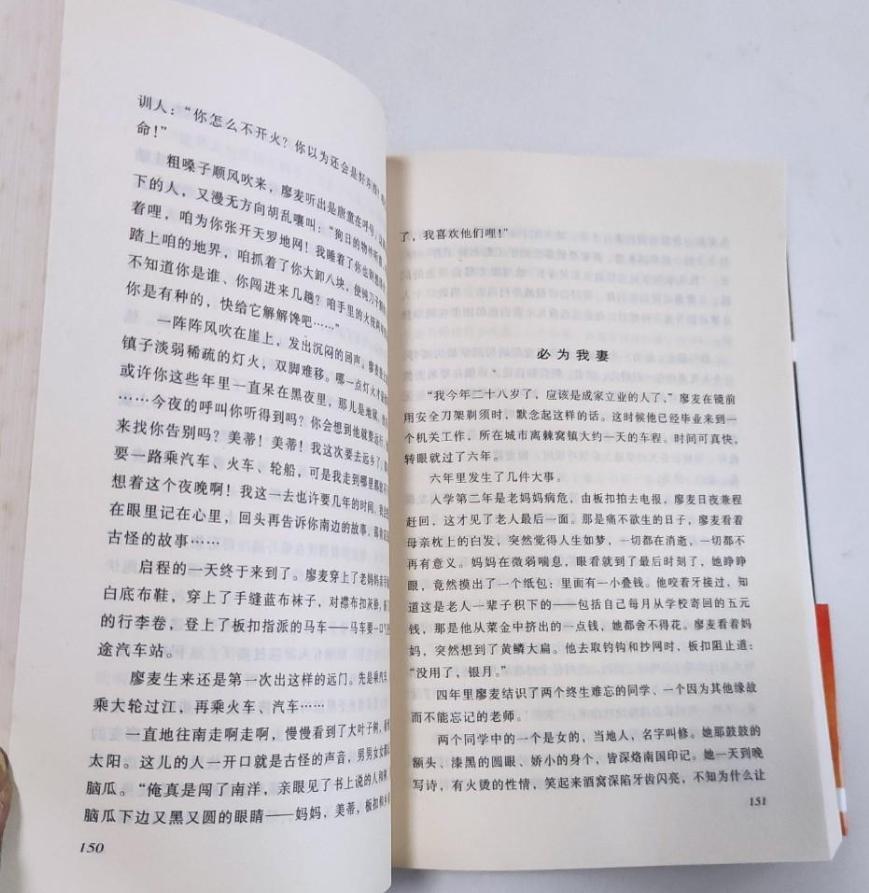 训人：“你怎么不开火？你以为还会是好东西？
命！”
粗嗓子顺风吹来，廖麦听出是唐童在呼号，
下的人，又漫无方向胡乱嚷叫：“狗日的物件听
着哩，咱为你张开天罗地网！我睡着了你也
踏上咱的地界，咱抓着了你大卸八块，使钝刀子
不知道你是谁、你闯进来几趟？咱手里的火铳
你是有种的，快给它解解馋吧……”
一阵阵风吹在崖上，发出沉闷的回声。廖麦
镇子淡弱稀疏的灯火，双脚难移。哪一点灯火才
或许你这些年里一直呆在黑夜里，那儿是地狱，
……今夜的呼叫你听得到吗？你会想到他就要远行，
来找你告别吗？美蒂！美蒂！我这次要去远乡了，
要一路乘汽车、火车、轮船，可是我走到哪里都
想着这个夜晚啊！我这一去也许要几年的时间，我
在眼里记在心里，回头再告诉你南边的故事，那
古怪的故事……
启程的一天终于来到了。廖麦穿上了老妈妈亲手
白底布鞋，穿上了手缝蓝布袜子，对襟布扣灰
的行李卷，登上了板扣指派的马车——马车要一口气
途汽车站。
廖麦生来还是第一次出这样的远门。先是乘汽车、
乘大轮过江、再乘火车、汽车……
一直地往南走啊走啊，慢慢看到了大叶子树，
太阳。这儿的人一开口就是古怪的声音，男男女女
脑瓜。“俺真是闯了南洋，亲眼见了书上说的人和
脑瓜下边又黑又圆的眼睛——妈妈，美蒂，板扣和
150
了，我喜欢他们哩！”
必为我妻
“我今年二十八岁了，应该是成家立业的人了。”廖麦在镜前
用安全刀架剃须时，默念起这样的话。这时候他已经毕业来到一
个机关工作，所在城市离棘窝镇大约一天的车程。时间可真快，
转眼就过了六年。
六年里发生了几件大事。
入学第二年是老妈妈病危，由板扣拍去电报，廖麦日夜兼程
赶回，这才见了老人最后一面。那是痛不欲生的日子，廖麦看着
母亲枕上的白发，突然觉得人生如梦，一切都在消逝，一切都不
再有意义。妈妈在微弱喘息，眼看就到了最后时刻了，她睁睁
眼，竟然摸出了一个纸包：里面有一小叠钱。他咬着牙接过，知
道这是老人一辈子积下的——包括自己每月从学校寄回的五元
钱，那是他从菜金中挤出的一点钱，她都舍不得花。廖麦看着妈
妈，突然想到了黄鳞大扁。他去取钓钩和抄网时，板扣阻止道：
“没用了，银月。”
四年里廖麦结识了两个终生难忘的同学、一个因为其他缘故
而不能忘记的老师。
两个同学中的一个是女的，当地人，名字叫修。她那鼓鼓的
额头、漆黑的圆眼、娇小的身个，皆深烙南国印记。她一天到晚
写诗，有火烫的性情，笑起来酒窝深陷牙齿闪亮，不知为什么让
151